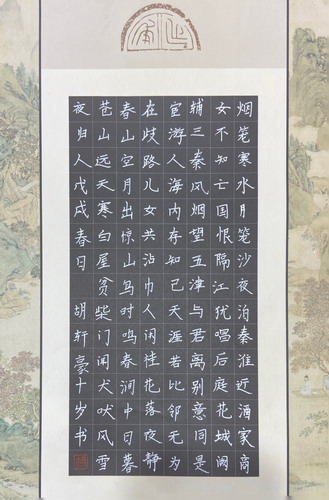 烟笼寒水月笼沙夜泊秦淮近酒家商
女不知亡国恨隔江犹唱后庭花城阙
辅三秦风烟望五津与君离别意同是
宦游人海内存知己天涯若比邻无为
在歧路儿女共沾巾人闲桂花落夜静
春山空月出惊山鸟时鸣春涧中日暮
苍山远天寒白屋贫柴门闻犬吠风雪
夜归人戊戌春日 胡轩豪十岁书